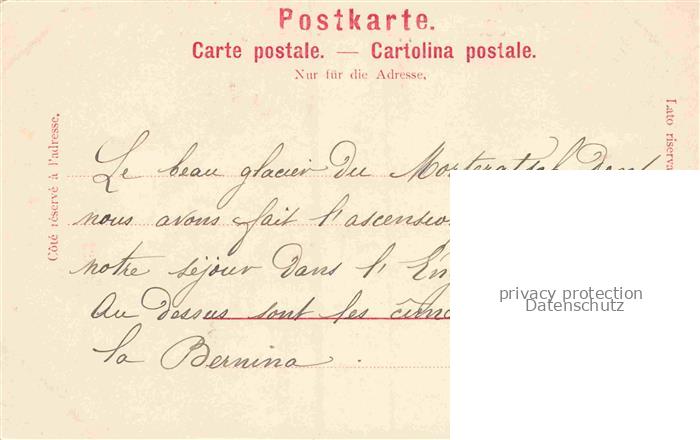 Postkarte.
Carte postale. — Cartolina postale.
Nur für die Adresse.
Côté réservé à l'adresse.
Lato riserva
Le beau glacier du Morteratsch dont
nous avons fait l'ascensio
notre séjour dans l'En
Au dessus sont les cîmes
la Bernina.
privacy protection
Datenschutz